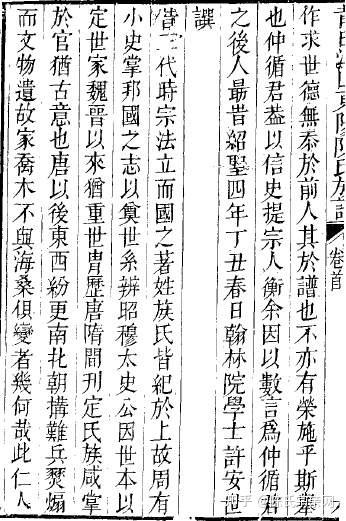 陳氏族譜
卷首
作求世德無忝於前人其於譜也不亦有榮施乎斯舉
也仲循君蓋以信史提宗人衡余因以數言為仲循君
之後人最昔紹聖四年丁丑春日翰林院學士許安世
譔
昔三代時宗法立而國之著姓族氏皆紀於上故周有
小史掌邦國之志以奠世系辨昭穆太史公因世本以
定世家魏晉以來猶重世胄歷唐隋間刊定氏族咸掌
於官猶古意也唐以後東西紛更南北朝搆難兵燹煽
而文物遺故家喬木不與海桑俱變者幾何哉此仁人
知乎